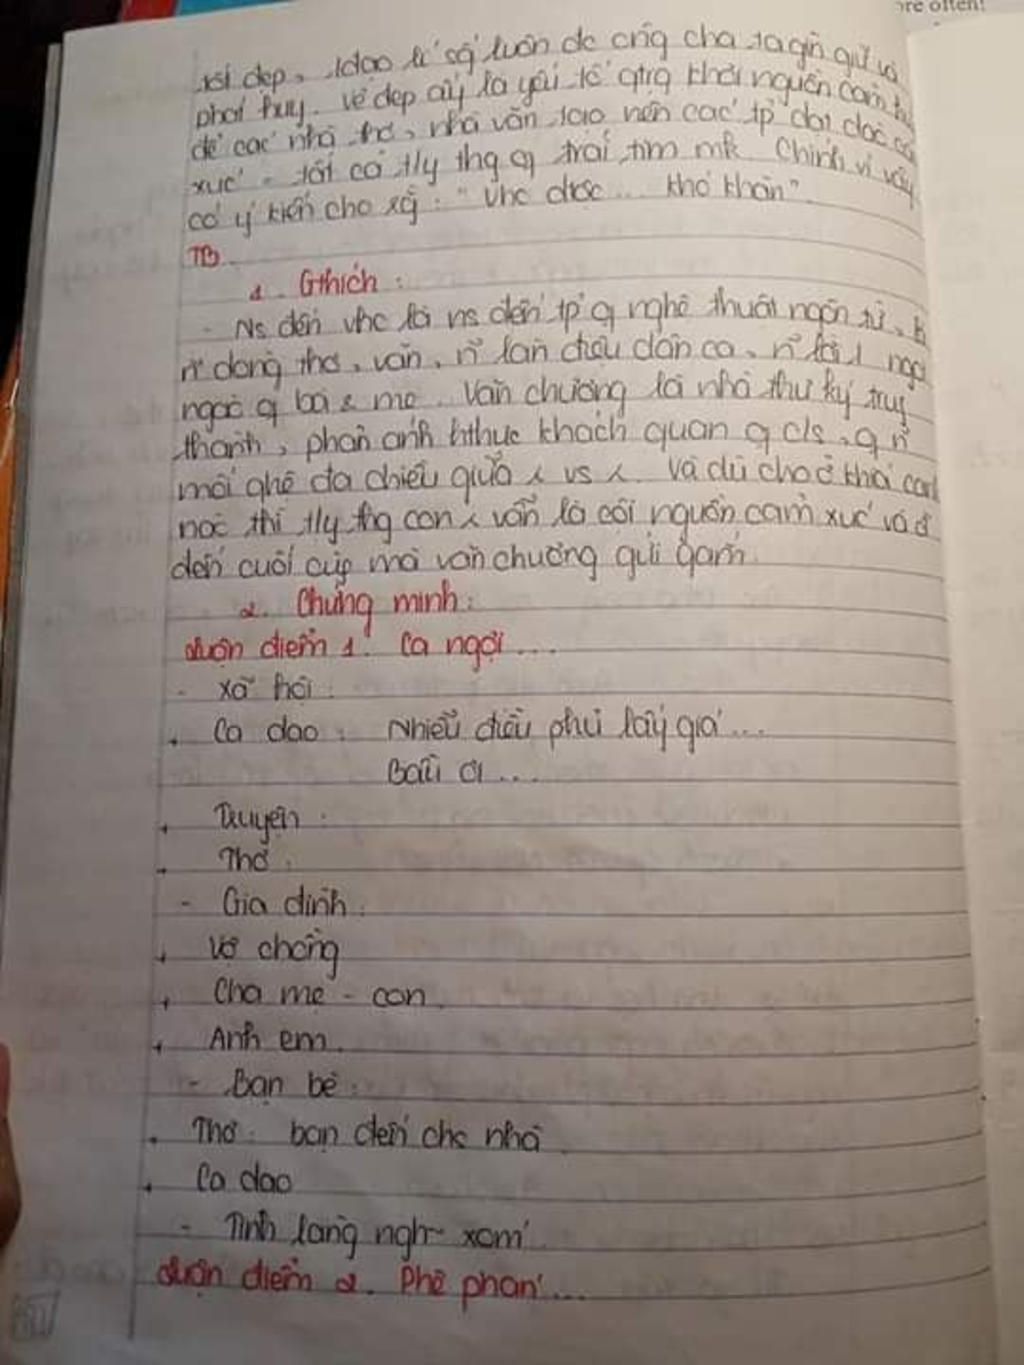 ore often!
tốt đẹp, đạo lí sống luôn đc cũng cha ta gìn giữ và
phát huy. Vẻ đẹp ấy là yếu tố qtrg khơi nguồn cảm
để các nhà thơ, nhà văn tạo nên các tp dạt dào
xúc - tất cả tly thg q trái tim mk. Chính vì vậy
có ý kiến cho rằng: "Vhc dtộc ... khó khăn".
TB
1. Gthích:
- Ns đến vhc là ns đến tp q nghệ thuật ngôn từ, là
n~ dòng thơ, văn, n~ làn điệu dân ca, n~ lời
ngào q bà & mẹ. Văn chương là nhà thư ký trung
thành, phản ánh hthực khách quan q c/s, q n~
mối qhệ đa chiều giữa x vs x. Và dù cho ở khía cạnh
nào thì tly thg con x vẫn là cội nguồn cảm xúc và đ
đến cuối cùg mà văn chương gửi gắm.
2. Chứng minh:
Luận điểm 1: Ca ngợi ...
- Xã hội:
+ Ca dao: Nhiễu điều phủ lấy giá ...
Bầu ơi ...
+ Truyện:
+ Thơ:
- Gia đình:
+ Vợ chồng
+ Cha mẹ - con
+ Anh em
- Bạn bè:
+ Thơ: bạn đến chơ nhà
+ Ca dao
- Tình làng ngh~ xóm
Luận điểm 2. Phê phán ...